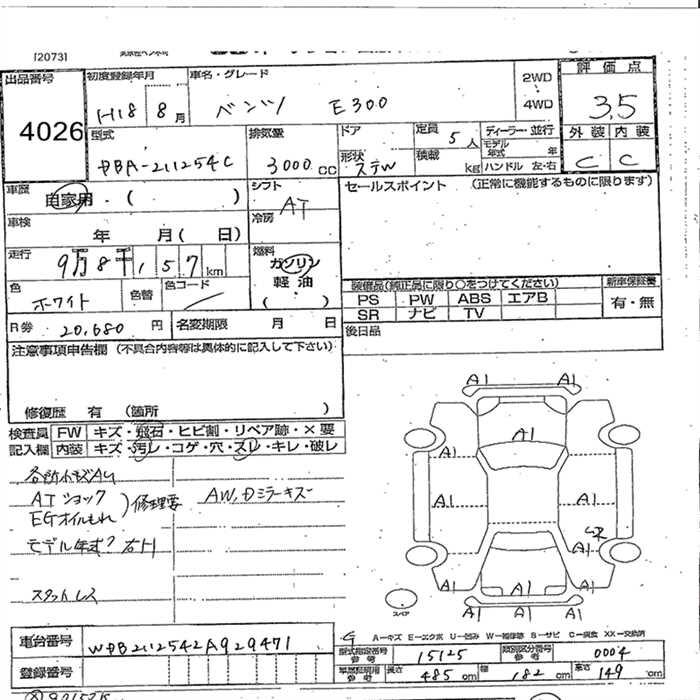 [2073]
出品番号 初度登録年月 車名・グレード 2WD 評価点
4026 H18 8月 ベンツ E300 4WD 3.5
型式 排気量 ドア 定員 5人 ディーラー・並行 外装 内装
DBA-211254C 3000cc 形状 ステW 積載 kg モデル年式 年 ハンドル 左・右 C C
車歴 自家用・( ) シフト AT セールスポイント (正常に機能するものに限ります)
車検 年 月( 日) 冷房
走行 9万8千157km 燃料 ガソリン 軽油 ( )
色 ホワイト 色替 色コード
装備品(純正品に限り○をつけてください) 新車保証書
PS PW ABS エアB 有・無
SR ナビ TV
R券 20,680円 名変期限 月 日 後日品
注意事項申告欄(不具合内容等は具体的に記入して下さい)
修復歴 有 (箇所 )
検査員 FW キズ・飛石・ヒビ割・リペア跡・×要
記入欄 内装 キズ・汚レ・コゲ・穴・スレ・キレ・破レ
各所小キズAU
ATショック
EGオイルもれ
修理要 AW,Dミラーキズ
モデル年式? 右H
スタットレス
A1 A1
A1
A1 A1
A1 A1
SR
A1 A1
A1 A1 A1
A1 A1 A1
スペア
A−キズ E−エクボ U−凹み W−補修跡 S−サビ C−腐食 XX−交換済
車台番号 WDB2112542A929471
型式指定番号 参考 15125 類別区分番号 参考 0004
登録番号
車庫証明用 参考 長さ 485cm 幅 182cm 高さ 149cm